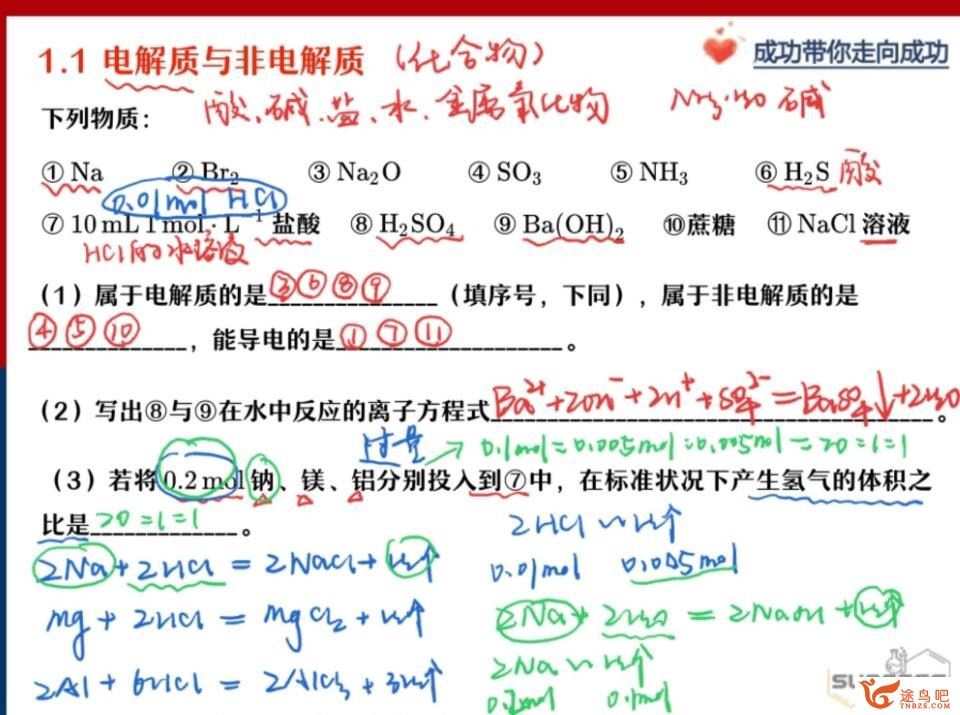 1.1 电解质与非电解质 (化合物) 成功带你走向成功
下列物质： 酸、碱、盐、水、金属氧化物 NH₃·H₂O 碱
① Na ② Br₂ ③ Na₂O ④ SO₃ ⑤ NH₃ ⑥ H₂S 酸
0.01mol HCl
⑦ 10 mL 1 mol·L⁻¹ 盐酸 ⑧ H₂SO₄ ⑨ Ba(OH)₂ ⑩蔗糖 ⑪ NaCl 溶液
HCl的水溶液
（1）属于电解质的是③⑥⑧⑨（填序号，下同），属于非电解质的是
④⑤⑩，能导电的是①⑦⑪。
（2）写出⑧与⑨在水中反应的离子方程式Ba²⁺+2OH⁻+2H⁺+SO₄²⁻=BaSO₄↓+2H₂O。
过量 → 0.1mol:0.005mol:0.005mol=20:1:1
（3）若将0.2 mol钠、镁、铝分别投入到⑦中，在标准状况下产生氢气的体积之
比是20:1:1。
2HCl ~ H₂↑
2Na+2HCl=2NaCl+H₂↑ 0.01mol 0.005mol
Mg+2HCl=MgCl₂+H₂↑ 2Na+2H₂O=2NaOH+H₂↑
2Na ~ H₂↑
2Al+6HCl=2AlCl₃+3H₂↑ 0.2mol 0.1mol
途鸟吧
TNBZS.COM